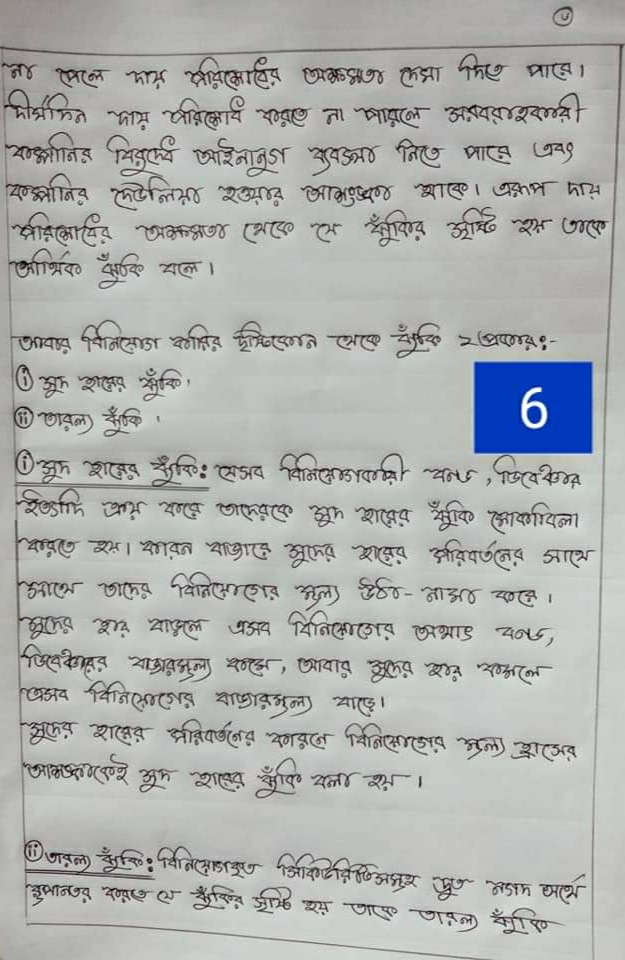 ৬
না পেলে দায় পরিশোধের অক্ষমতা দেখা দিতে পারে।
দীর্ঘদিন দায় পরিশোধ করতে না পারলে সরবরাহকারী
কোম্পানির বিরুদ্ধে আইনানুগ ব্যবস্থা নিতে পারে এবং
কোম্পানির দেউলিয়া হওয়ার আশংঙ্কা থাকে। এরূপ দায়
পরিশোধের অক্ষমতা থেকে যে ঝুঁকির সৃষ্টি হয় তাকে
আর্থিক ঝুঁকি বলে।
আবার বিনিয়োগ কারির দৃষ্টিকোন থেকে ঝুঁকি ২প্রকার:-
i সুদ হারের ঝুঁকি।
ii তারল্য ঝুঁকি।
6
i সুদ হারের ঝুঁকি: যেসব বিনিয়োগকারী বন্ড, ডিবেঞ্চার
ইত্যাদি ক্রয় করে তাদেরকে সুদ হারের ঝুঁকি মোকাবিলা
করতে হয়। কারন বাজারে সুদের হারের পরিবর্তনের সাথে
সাথে তাদের বিনিয়োগের মূল্য উঠা-নামা করে।
সুদের হার বাড়লে এসব বিনিয়োগের অর্থাৎ বন্ড,
ডিবেঞ্চারের বাজারমূল্য কমে, আবার সুদের হার কমলে
এসব বিনিয়োগের বাজারমূল্য বাড়ে।
সুদের হারের পরিবর্তনের কারনে বিনিয়োগের মূল্য হ্রাসের
আশঙ্কাকেই সুদ হারের ঝুঁকি বলা হয়।
ii তারল্য ঝুঁকি: বিনিয়োগকৃত সিকিউরিটিসমূহ দ্রুত নগদ অর্থে
রূপান্তর করতে যে ঝুঁকির সৃষ্টি হয় তাকে তারল্য ঝুঁকি